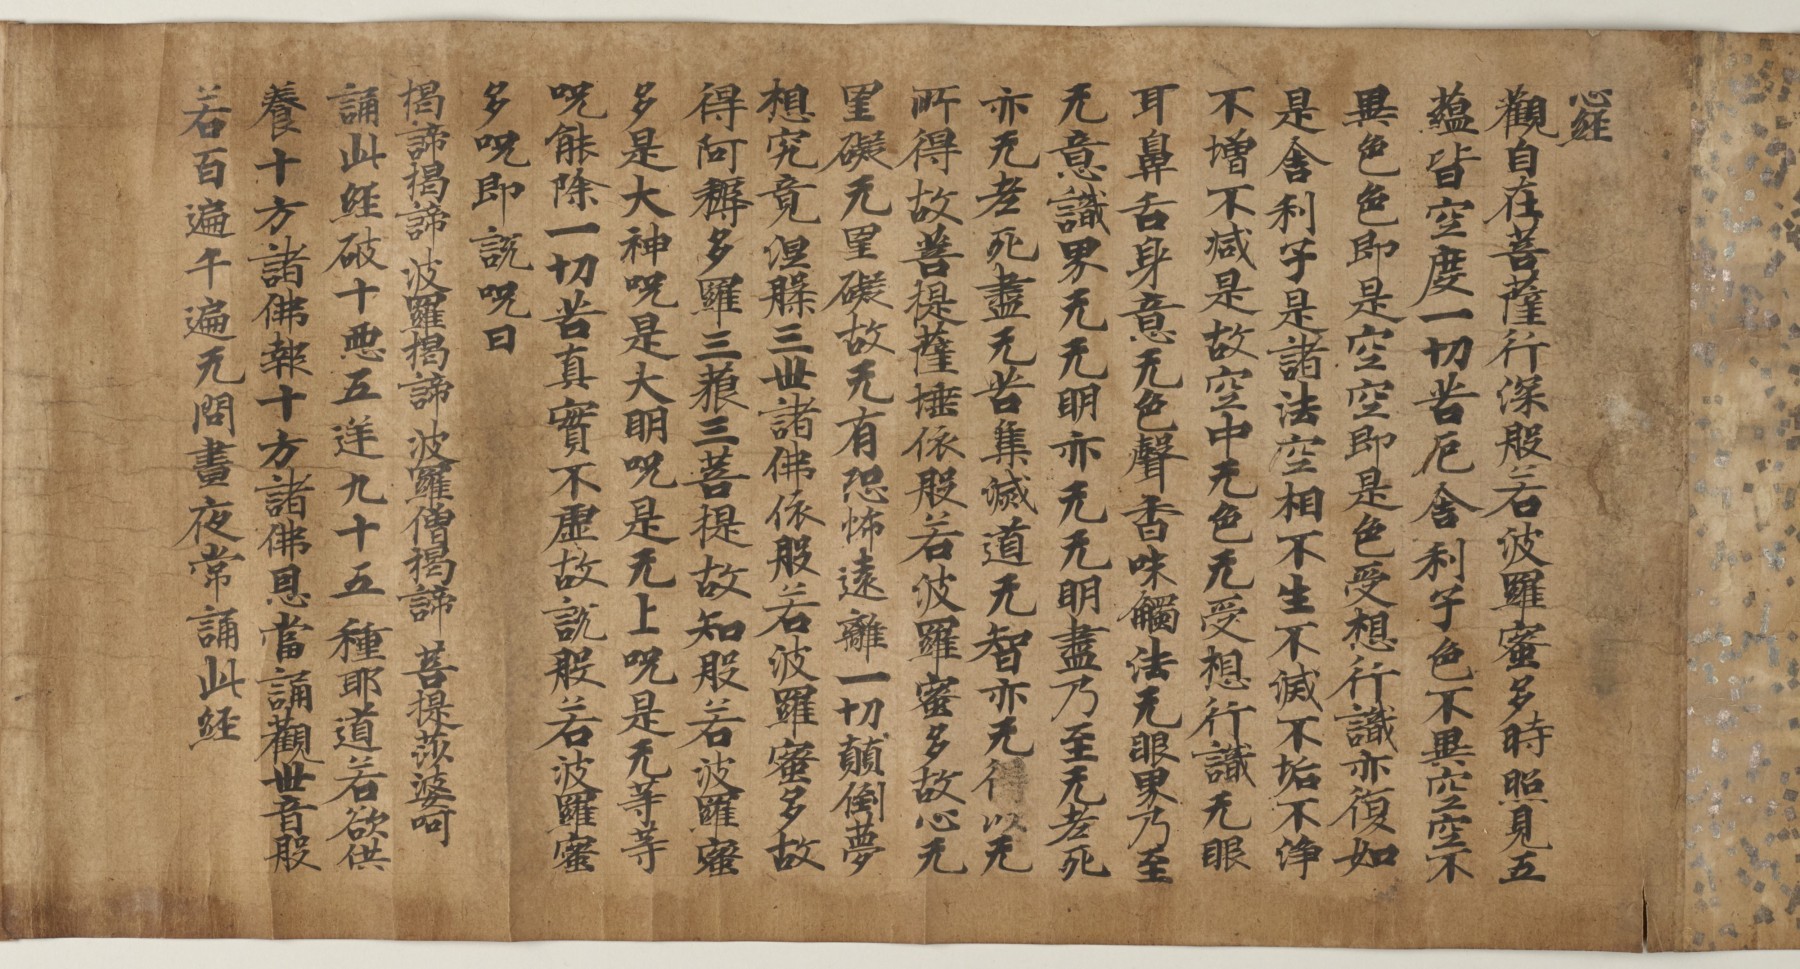 心経
觀自在菩薩行深般若波羅蜜多時照見五
蘊皆空度一切苦厄舍利子色不異空空不
異色色即是空空即是色受想行識亦復如
是舍利子是諸法空相不生不滅不垢不浄
不増不減是故空中无色无受想行識无眼
耳鼻舌身意无色聲香味觸法无眼界乃至
无意識界无无明亦无无明盡乃至无老死
亦无老死盡无苦集滅道无智亦无得以无
所得故菩提薩埵依般若波羅蜜多故心无
罣礙无罣礙故无有恐怖遠離一切顛倒夢
想究竟涅槃三世諸佛依般若波羅蜜多故
得阿耨多羅三藐三菩提故知般若波羅蜜
多是大神呪是大明呪是无上呪是无等等
呪能除一切苦真實不虚故説般若波羅蜜
多呪即説呪曰
揭諦揭諦 波羅揭諦 波羅僧揭諦 菩提莎婆呵
誦此経破十悪五逆九十五種耶道若欲供
養十方諸佛報十方諸佛恩當誦觀世音般
若百遍千遍无問晝夜常誦此経